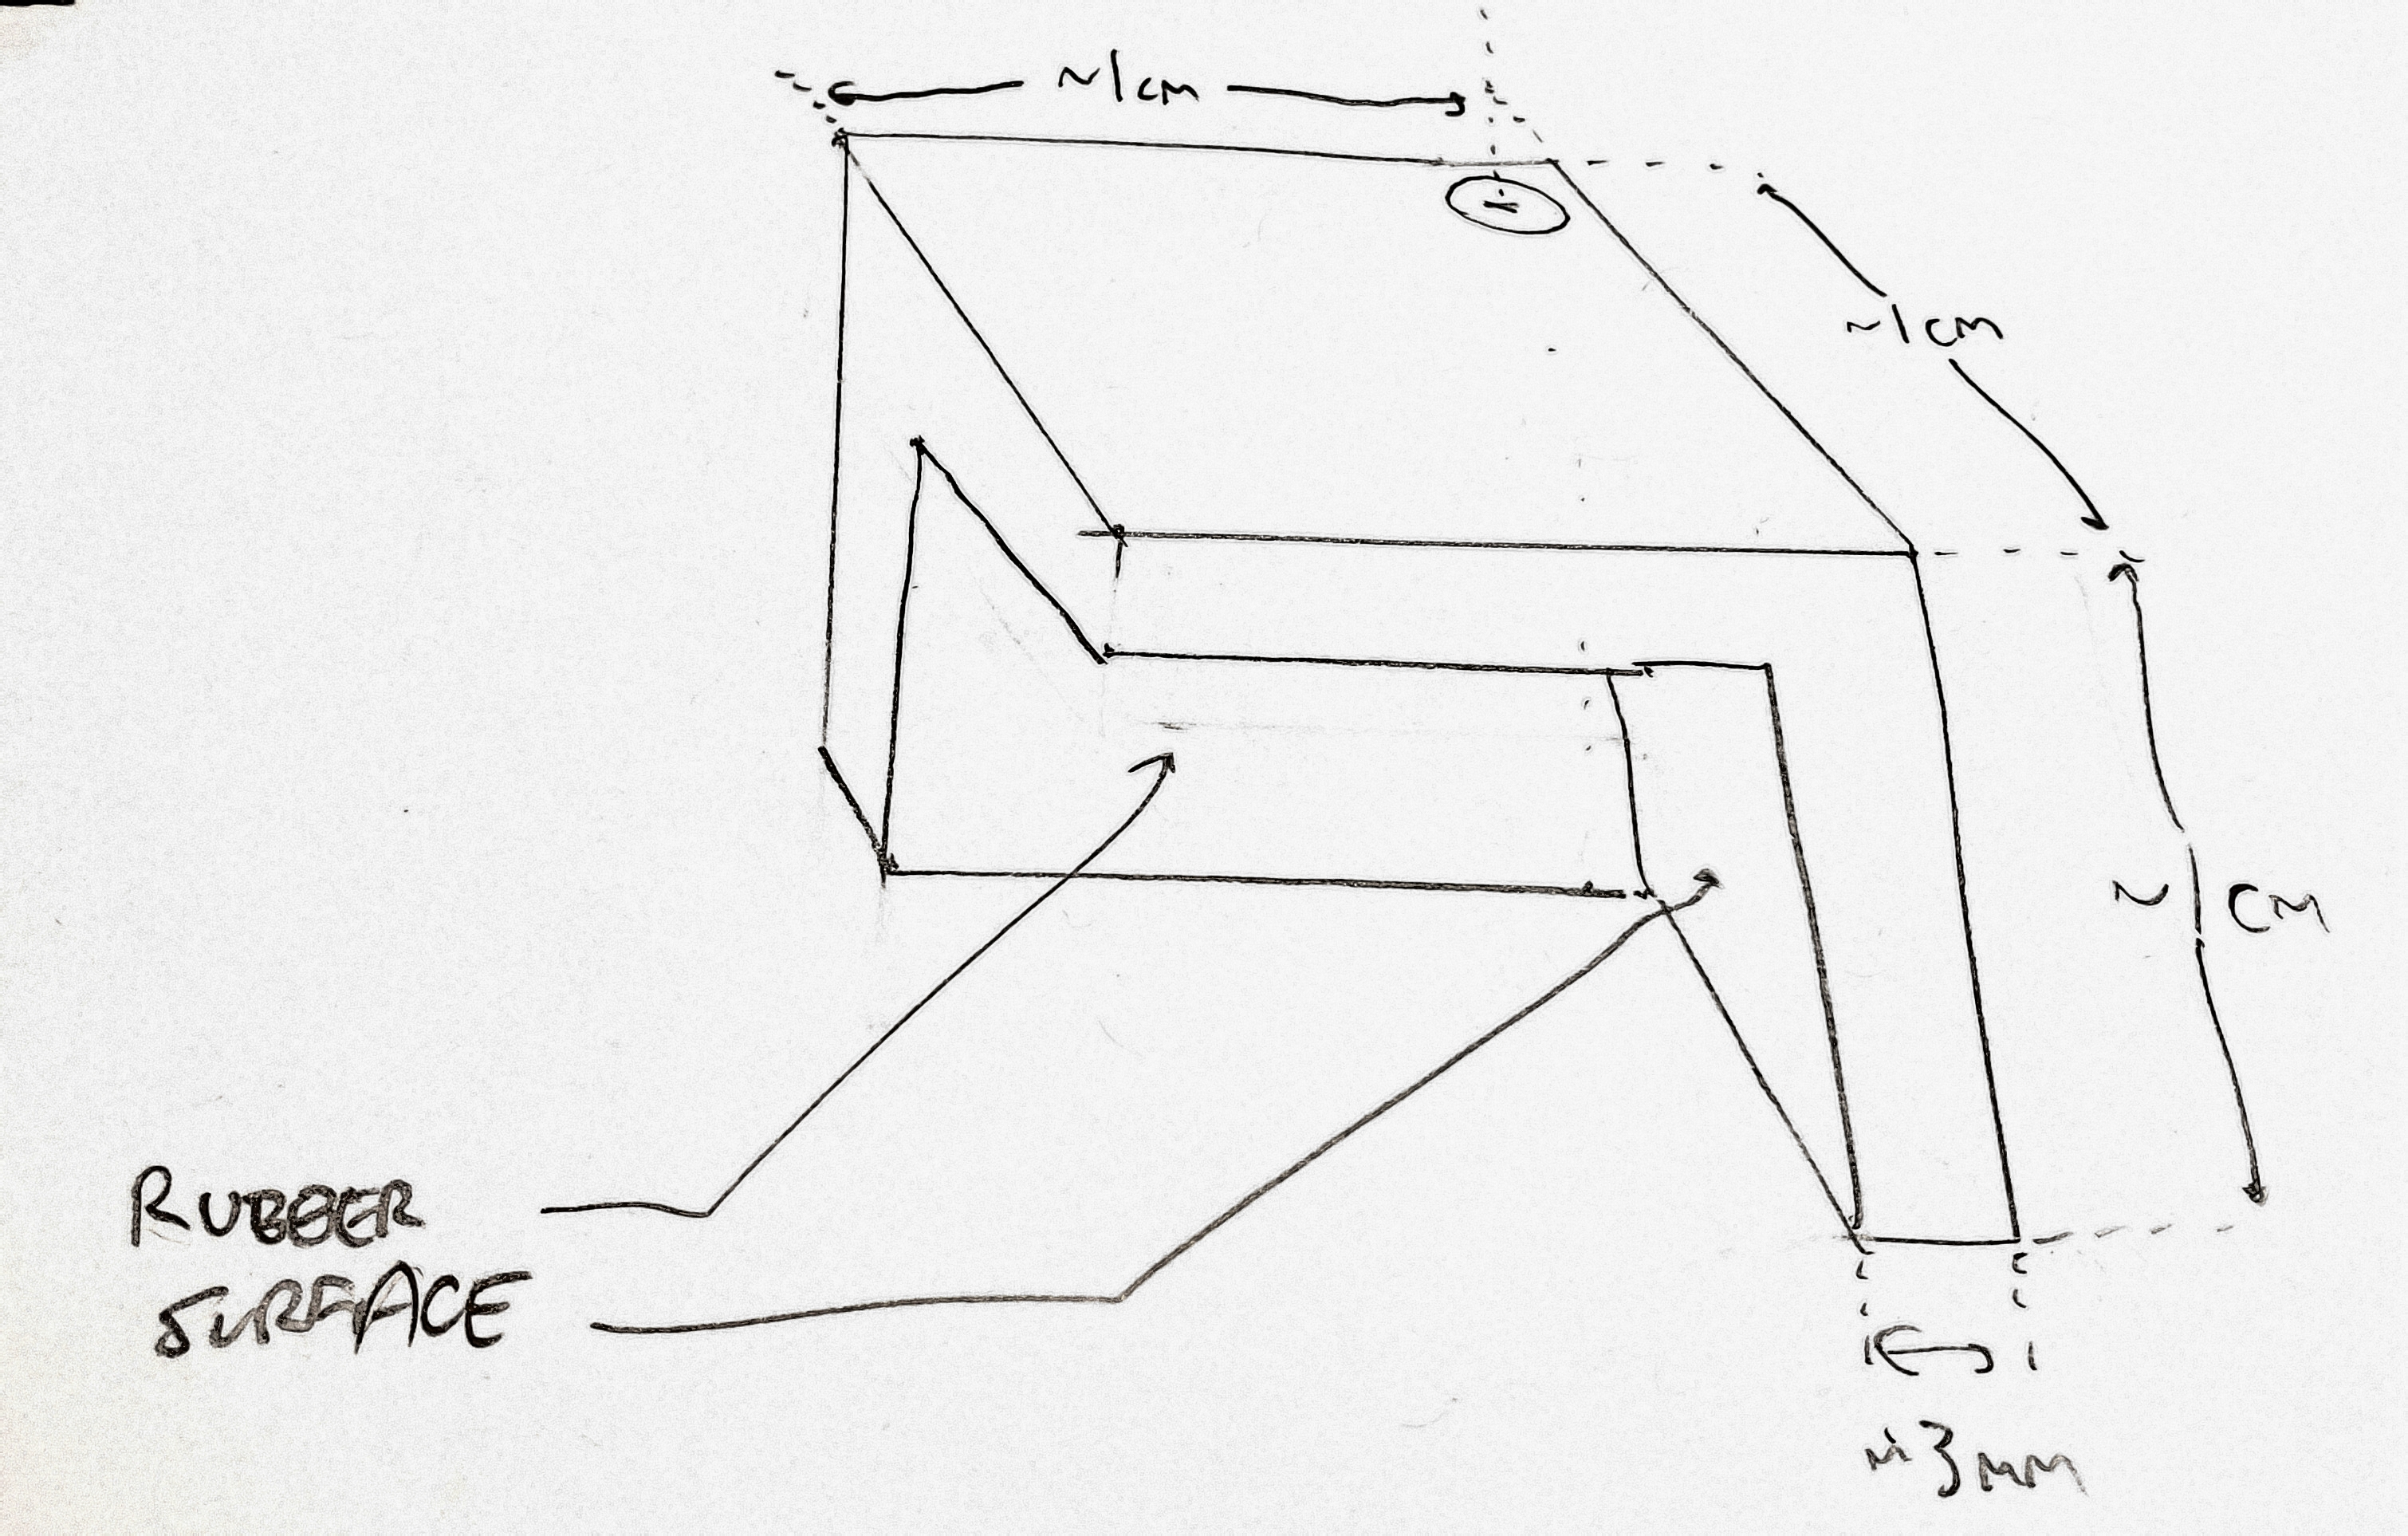 ~1cm
~1cm
~1cm
RUBBER
SURFACE
~3mm